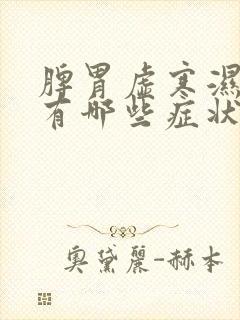 脾胃虚寒濕
有哪些症状
奥黛麗-赫本